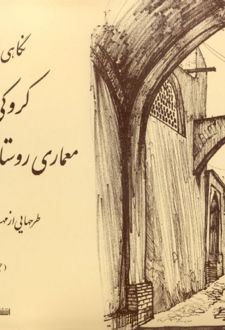 نگاهی
کروکی
معماری روستا
طرحهایی از مه